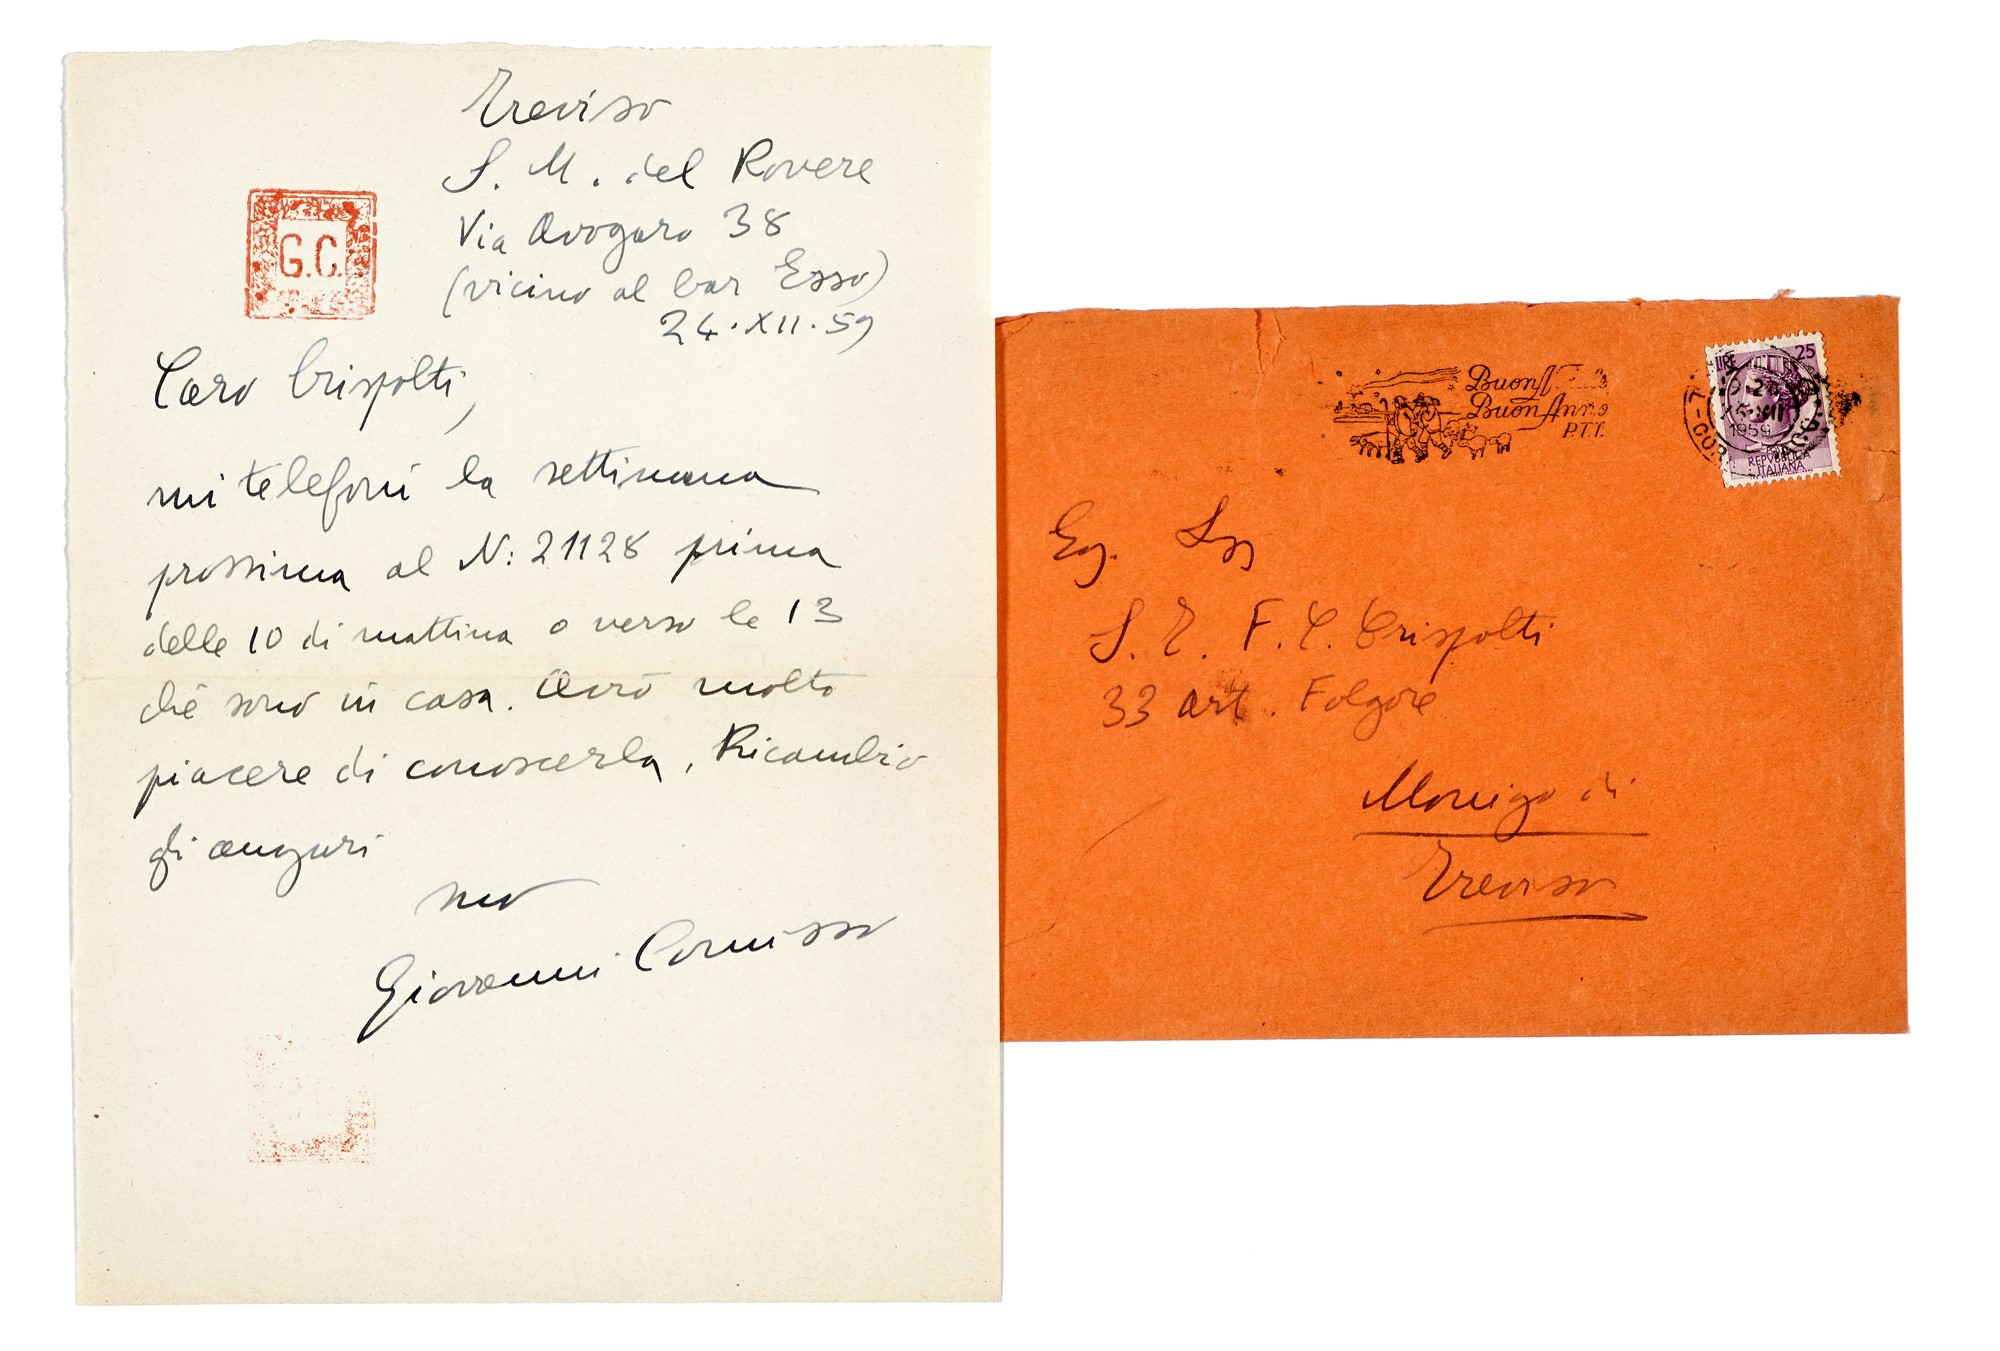 Treviso
S. M. del Rovere
Via Avogaro 38
(vicino al bar Esso)
24.XII.59
G.C.
Caro Crispolti,
mi telefoni la settimana
prossima al N: 21128 prima
delle 10 di mattina o verso le 13
chè sono in casa. Avrò molto
piacere di conoscerla. Ricambio
gli auguri
suo
Giovanni Comisso
Buon
Buon Anno
P.T.T.
LIRE 25
XII
1959
REPVBBLICA
ITALIANA
Eg. Sig
S. T. F. C. Crispolti
33 art. Folgore
Monigo di
Treviso